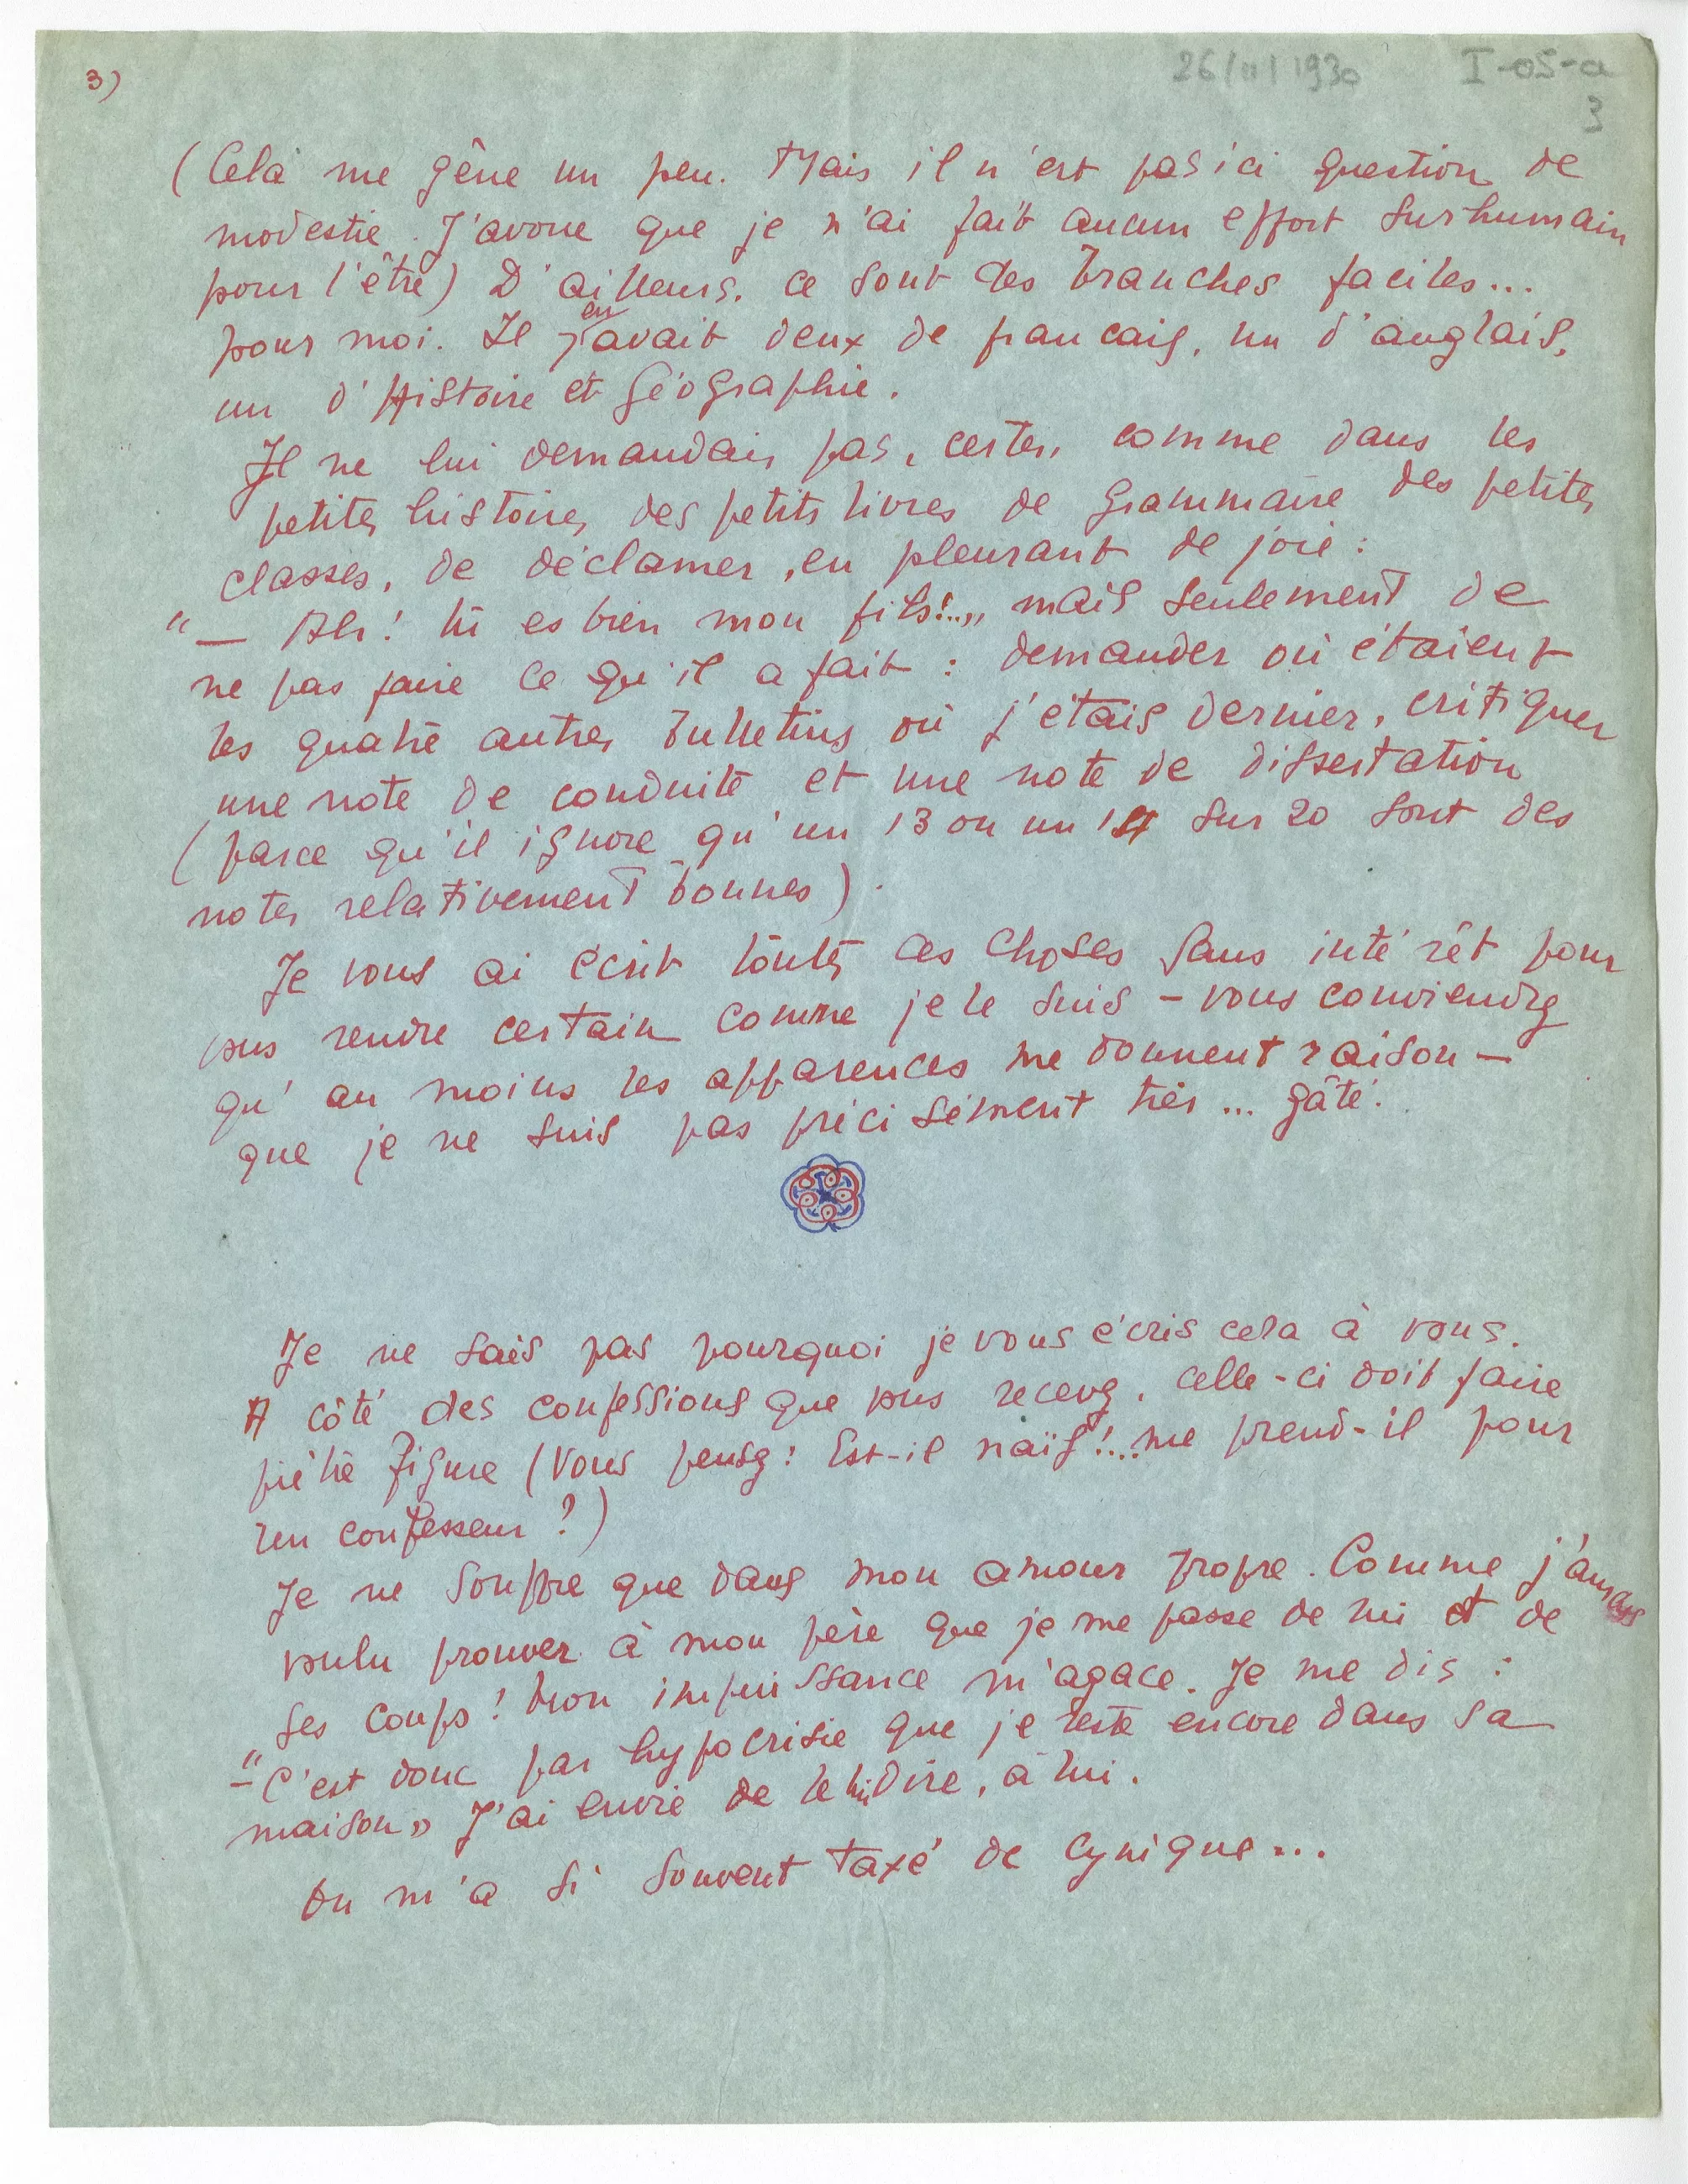 3)
26/11/1930 I-OS-a
3
(Cela me gêne un peu. Mais il n'est pas ici question de
modestie. J'avoue que je n'ai fait aucun effort surhumain
pour l'être) D'ailleurs, ce sont des branches faciles...
pour moi. Il y en avait deux de francais, un d'anglais,
un d'Histoire et Géographie.
Je ne lui demandais pas, certes, comme dans les
petites histoires des petits livres de Grammaire des petites
classes, de déclamer, en pleurant de joie :
"— Ah! tu es bien mon fils!..„ mais seulement de
ne pas faire ce qu'il a fait : demander où étaient
les quatre autres bulletins où j'étais dernier, critiquer
une note de conduite et une note de dissertation
(parce qu'il ignore qu'un 13 ou un 14 sur 20 sont des
notes relativement bonnes).
Je vous ai écrit toutes ces choses sans intérêt pour
vous rendre certain comme je le suis – vous conviendrez
qu'au moins les apparences me donnent raison –
que je ne suis pas précisément très... gâté.
Je ne sais pas pourquoi je vous écris cela à vous.
A côté des confessions que vous recevez, celle-ci doit faire
piètre figure (Vous pensez : Est-il naïf!... me prend-il pour
un confesseur ?)
Je ne souffre que dans mon amour propre. Comme j'aurais
voulu prouver à mon père que je me passe de lui et de
ses coups! Mon impuissance m'agace. Je me dis :
"– C'est donc par hypocrisie que je reste encore dans sa
maison„ J'ai envie de le lui dire, à lui.
On m'a si souvent taxé de cynique...